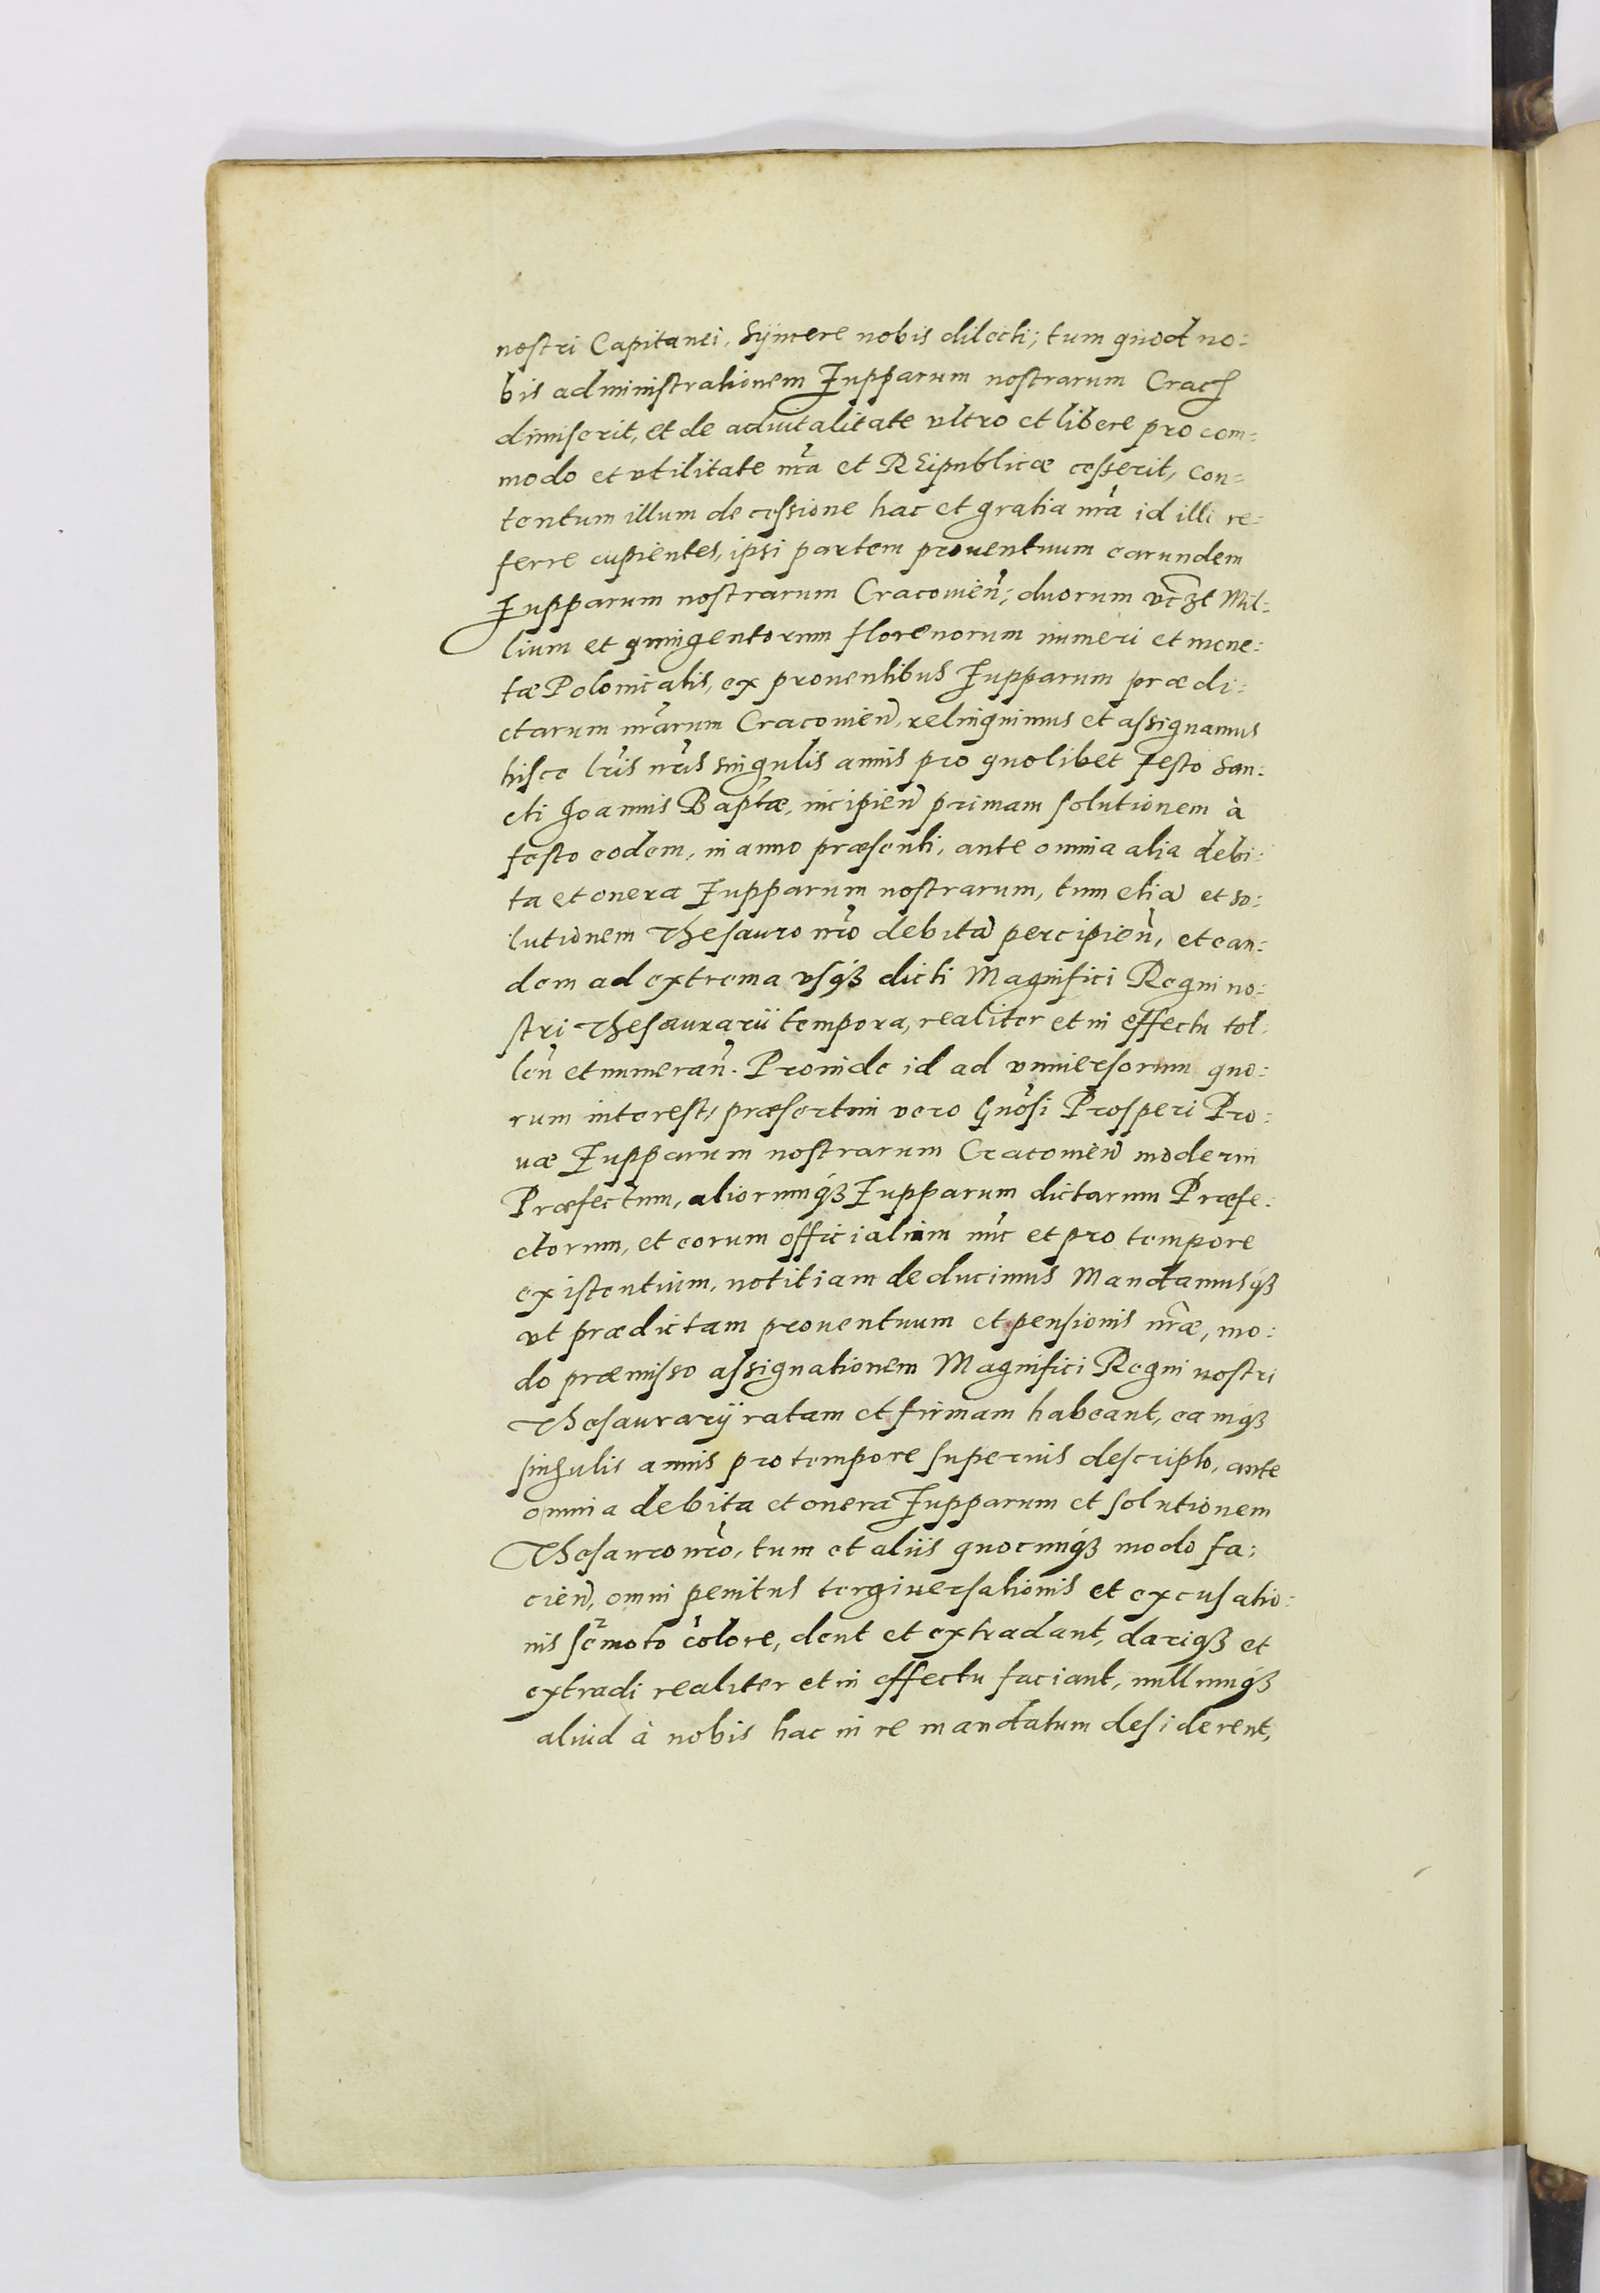 nostri Capitanei, syncere nobis dilecti; tum quod no:
bis administrationem Zupparum nostrarum Crac
dimiserit, et de advitalitate vltro et libere pro com:
modo et vtilitate nr̃a et REipublicæ cesserit, con:
tentum illum de cessione hac et gratia nr̃a id illi re:
ferre cupientes, ipsi partem prouentuum earundem
Zupparum nostrarum Cracouien̄, duorum vcz̃t Mil:
lium et quingentorum florenorum numeri et mone:
tæ Polonicalis, ex prouentibus Zupparum prædi:
ctarum nr̃arum Cracouien̄, relinquimus et assignamus
hisce lr̃is nr̃is singulis annis pro quolibet festo San:
cti Joannis Bapt̃æ, incipien̄ primam solutionem à
festo eodem, in anno præsenti, ante omnia alia debi:
ta et onera Zupparum nostrarum, tum etiā et so:
lutionem Thesauro nr̃o debitā percipien̄, et ean:
dem ad extrema vsq́ꝫ dicti Magnifici Regni no:
stri Thesaurarii tempora, realiter et in effectu tol:
len̄ et numeran̄. Proinde id ad vniuersorum quo:
rum interest, præsertim vero Gn̄osi Prosperi Pro:
uæ Zupparum nostrarum Cracouien̄ moderni
Præfectum, aliorumq́ꝫ Zupparum dictarum Præfe:
ctorum, et eorum officialium nūc et pro tempore
existentium, notitiam deducimus Mandamusq́ꝫ
vt prædictam prouentuum et pensionis nr̃æ, mo:
do præmisso assignationem Magnifici Regni nostri
Thesaurarij ratam et firmam habeant, eamq́ꝫ
singulis annis pro tempore superius descripto, ante
omnia debita et onera Zupparum et solutionem
Thesauro nr̃o, tum et aliis quocunq́ꝫ modo fa:
cien̄, omni penitus tergiuersationis et excusatio:
nis semoto colore, dent et extradant, dariq́ꝫ et
extradi realiter et in effectu faciant, nullumq́ꝫ
aliud à nobis hac in re mandatum desiderent,